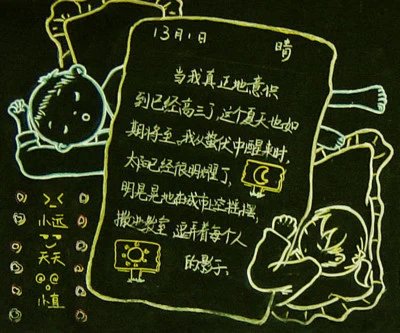 13月1日 晴
当我真正地意识
到已经高三了,这个夏天也如
期将至。我从蛰伏中醒来时,
太阳已经很明耀了,
明晃晃地在城市上空摇摆,
搬进教室,逗弄着每个人
的影子。
小远
天天
小直